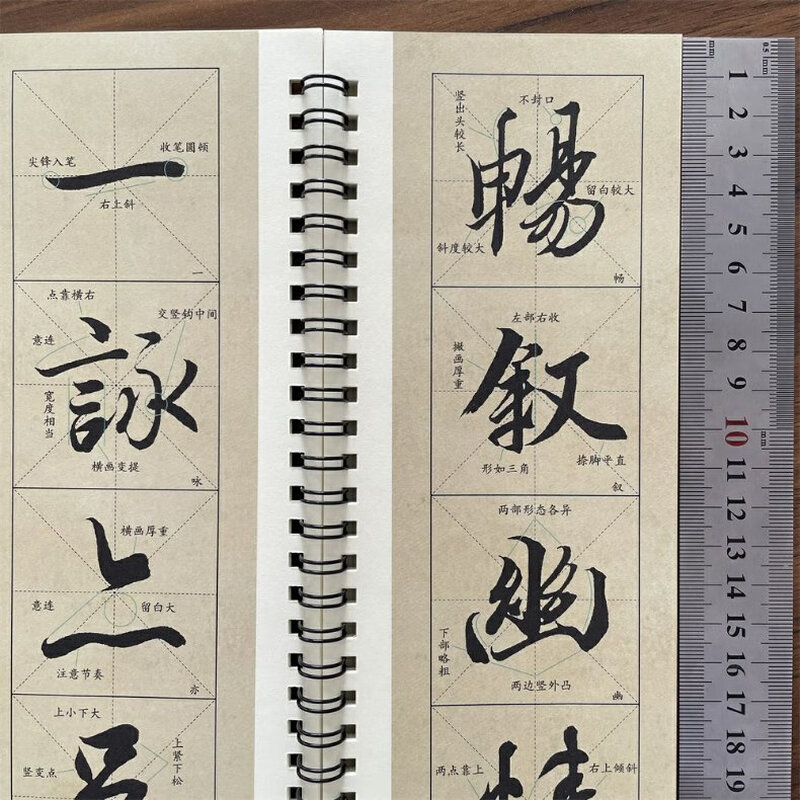 尖锋入笔
收笔圆顿
一
右上斜
一
点靠横右
交竖钩中间
意连
詠
宽度相当
横画变提
咏
横画厚重
意连
亦
留白大
注意节奏
亦
上小下大
上紧下松
竖变点
竖出头较长
不封口
暢
留白较大
斜度较大
畅
左部右收
撇画厚重
叙
形如三角
捺脚平直
叙
两部形态各异
幽
下部略粗
两边竖外凸
幽
两点靠上
右上倾斜
mm
0.5
mm
1
2
3
4
5
6
7
8
9
10
mm
11
12
13
14
15
16
17
18
19